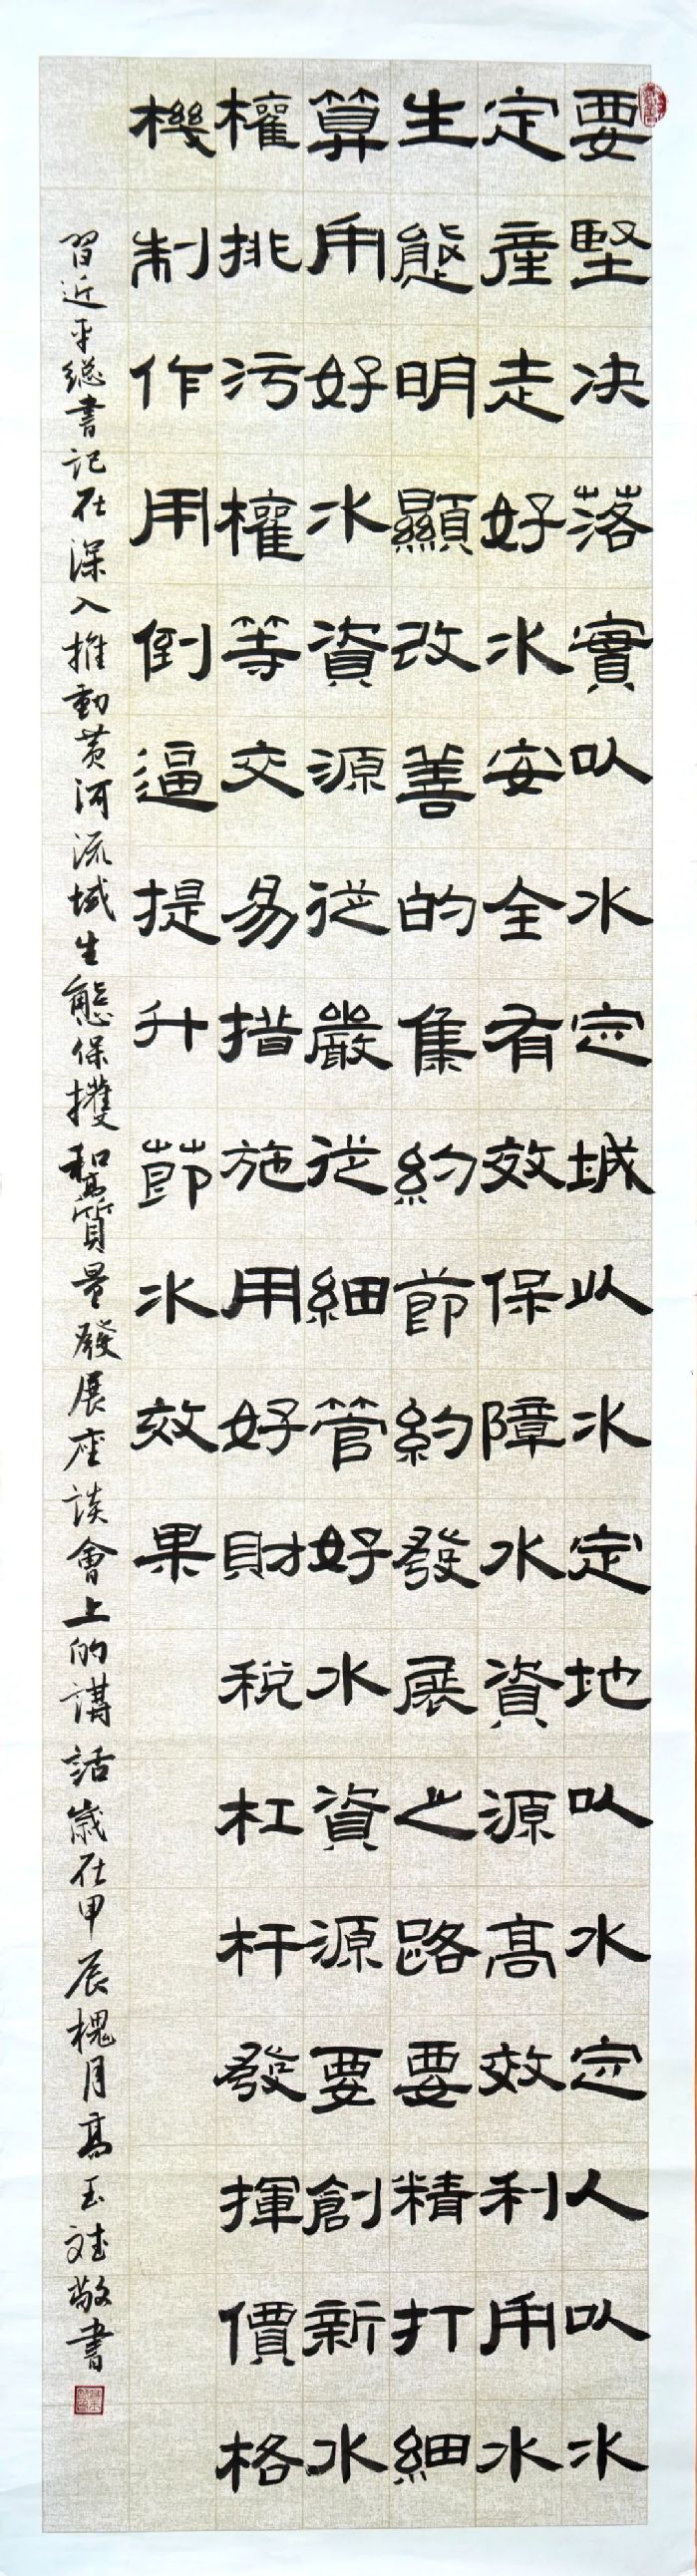 要堅决落實以水定城以水定地以水定人以水
定產走好水安全有效保障水資源高效利用水
生態明顯改善的集約節約發展之路要精打細
算用好水資源從嚴從細管好水資源要創新水
權排污權等交易措施用好財税杠杆發揮價格
機制作用倒逼提升節水效果
習近平總書記在深入推動黄河流域生態保護和高質量發展座談會上的講話歲在甲辰槐月高玉斌敬書